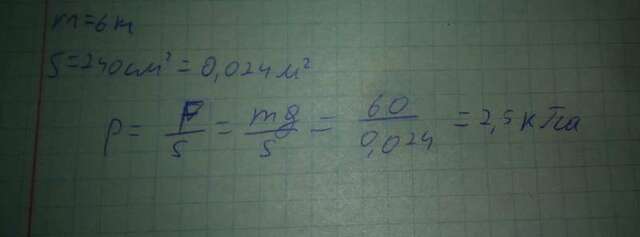 m=6кг
S=240см²=0,024м²
p= F/S = mg/S = 60/0,024 =2,5кПа